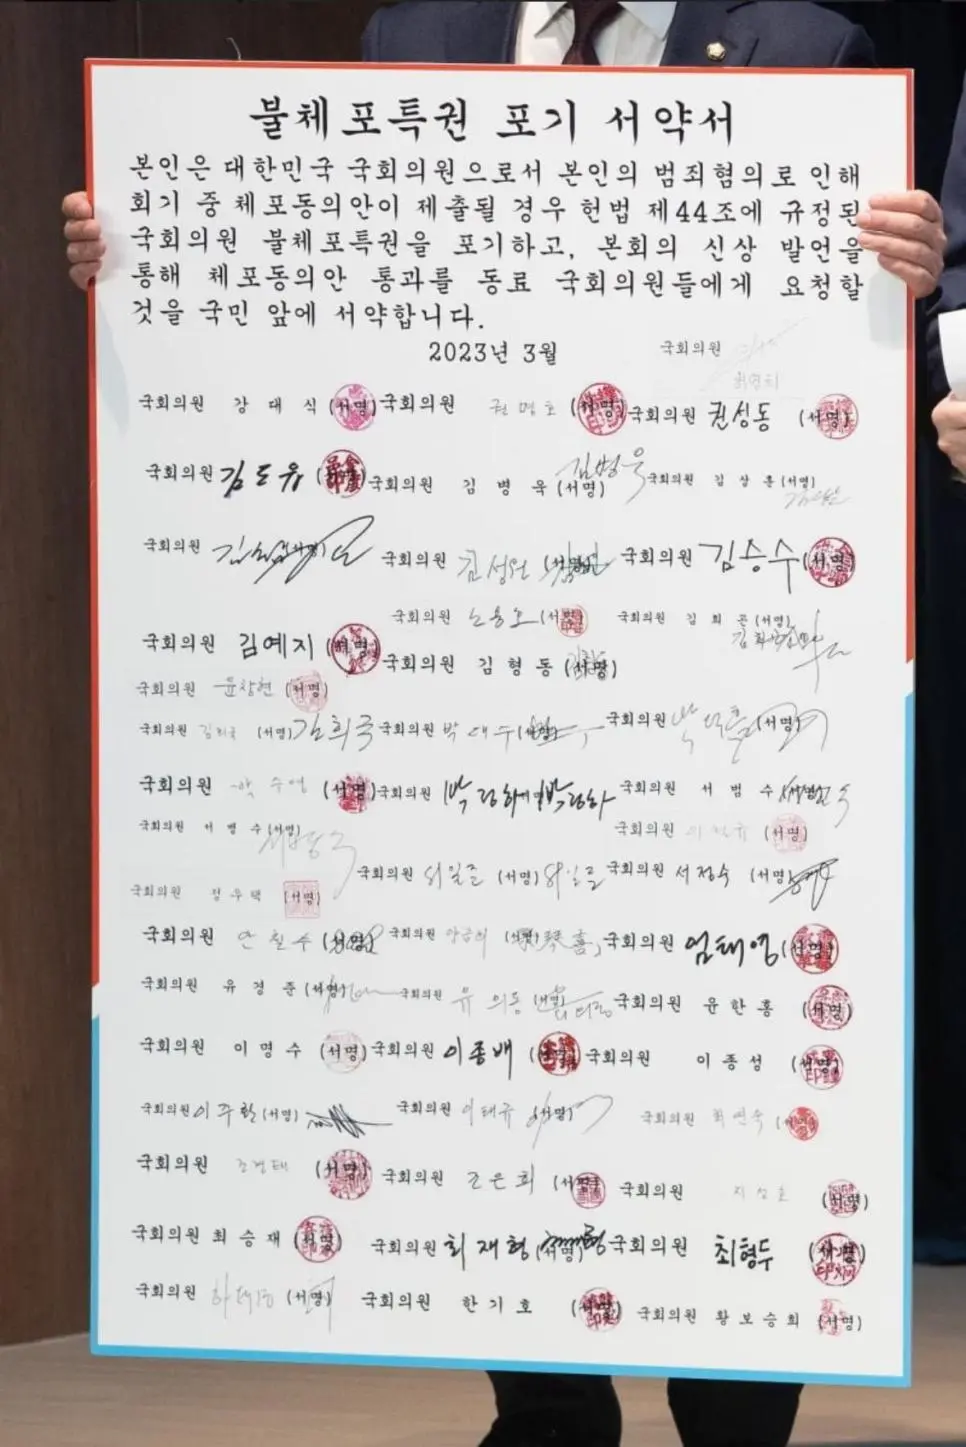 불체포특권 포기 서약서
본인은 대한민국 국회의원으로서 본인의 범죄혐의로 인해
회기 중 체포동의안이 제출될 경우 헌법 제44조에 규정된
국회의원 불체포특권을 포기하고, 본회의 신상 발언을
통해 체포동의안 통과를 동료 국회의원들에게 요청할
것을 국민 앞에 서약합니다.
2023년 3월
국회의원
국회의원 강대식 (서명) 국회의원 권명호 (서명) 국회의원 권성동 (서명)
국회의원 김도읍 (서명) 국회의원 김병욱 (서명) 김병욱 국회의원 김상훈 (서명)
국회의원 국회의원 김성원 국회의원 김승수 (서명)
국회의원 노용호 (서명) 국회의원 김희곤 (서명)
국회의원 김예지 (서명) 국회의원 김형동 (서명)
국회의원 윤창현 (서명)
국회의원 김희국 (서명) 김희국 국회의원 박대수 국회의원 (서명)
국회의원 박수영 (서명) 국회의원 박정하 박정하 국회의원 서범수 (서명)
국회의원 서병수 (서명) 국회의원 (서명)
국회의원 서일준 (서명) 서일준 국회의원 서정숙 (서명)
국회의원 정우택 (서명)
국회의원 안철수 (서명) 국회의원 양금희 (서명) 국회의원 엄태영 (서명)
국회의원 유경준 (서명) 국회의원 유의동 국회의원 윤한홍 (서명)
국회의원 이명수 (서명) 국회의원 이종배 (서명) 국회의원 이종성 (서명)
국회의원 이주환 (서명) 국회의원 이태규 (서명) 국회의원 최연숙
국회의원 조경태 (서명) 국회의원 조은희 (서명) 국회의원 지성호 (서명)
국회의원 최승재 (서명) 국회의원 최재형 (서명) 국회의원 최형두 (서명)
국회의원 하태경 (서명) 국회의원 한기호 (서명) 국회의원 황보승희 (서명)